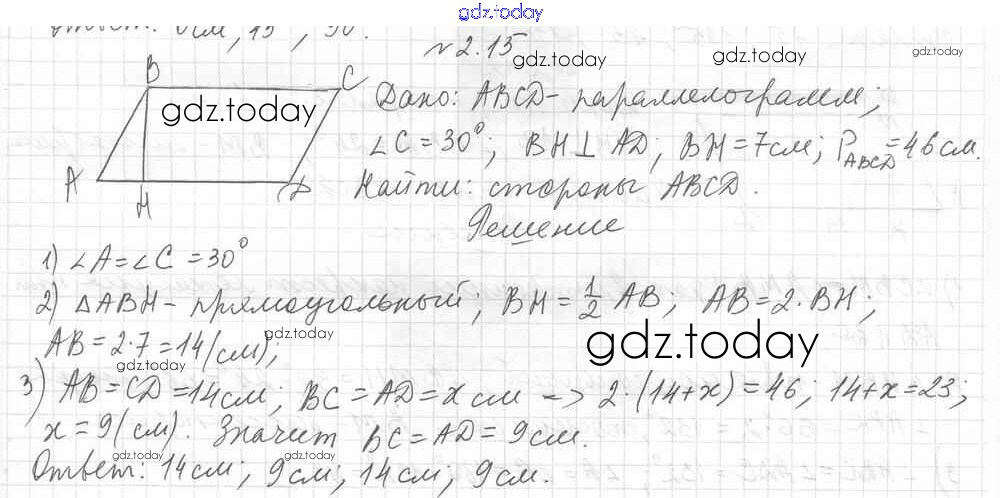 gdz.today
Ответ: 6см, 15, 30.
№2.15
gdz.today
gdz.today
B
C
gdz.today
A
H
D
Дано: ABCD - параллелограмм;
∠C = 30°; BH ⊥ AD; BH = 7см; P_ABCD = 46 см.
gdz.today
gdz.today
Найти: стороны ABCD.
Решение
1) ∠A = ∠C = 30°
2) △ABH - прямоугольный; BH = 1/2 AB; AB = 2·BH;
AB = 2·7 = 14 (см);
gdz.today
gdz.today
gdz.today
3) AB = CD = 14 см; BC = AD = x см -> 2·(14+x) = 46; 14+x = 23;
x = 9 (см). Значит BC = AD = 9 см.
gdz.today
gdz.today
Ответ: 14 см; 9 см; 14 см; 9 см.